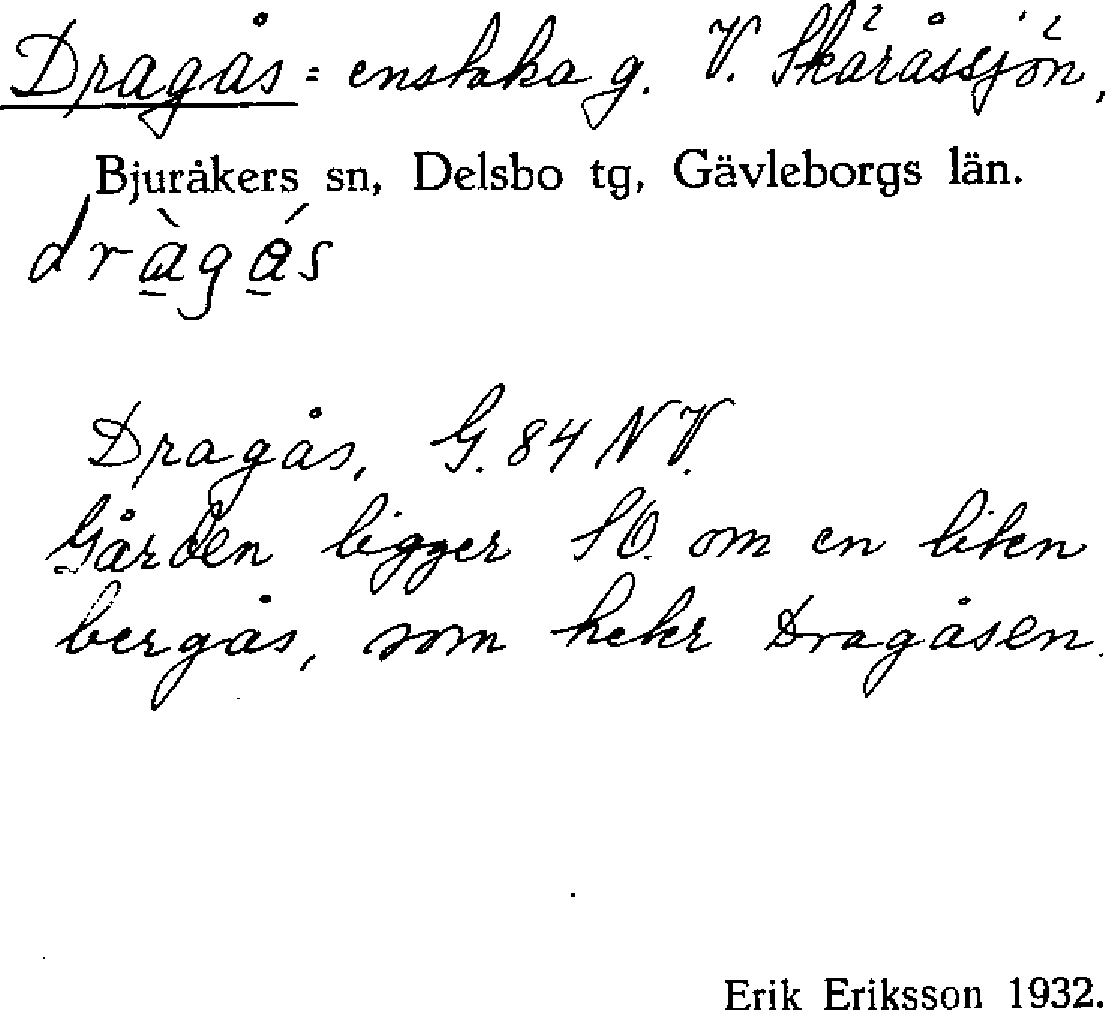 Dragås = enstaka g. V. Skäråssjön,
Bjuråkers sn, Delsbo tg, Gävleborgs län.
dràgás
Dragås, G. 84 NV.
Gården ligger SO. om en liten
bergås, som heter Dragåsen.
Erik Eriksson 1932.